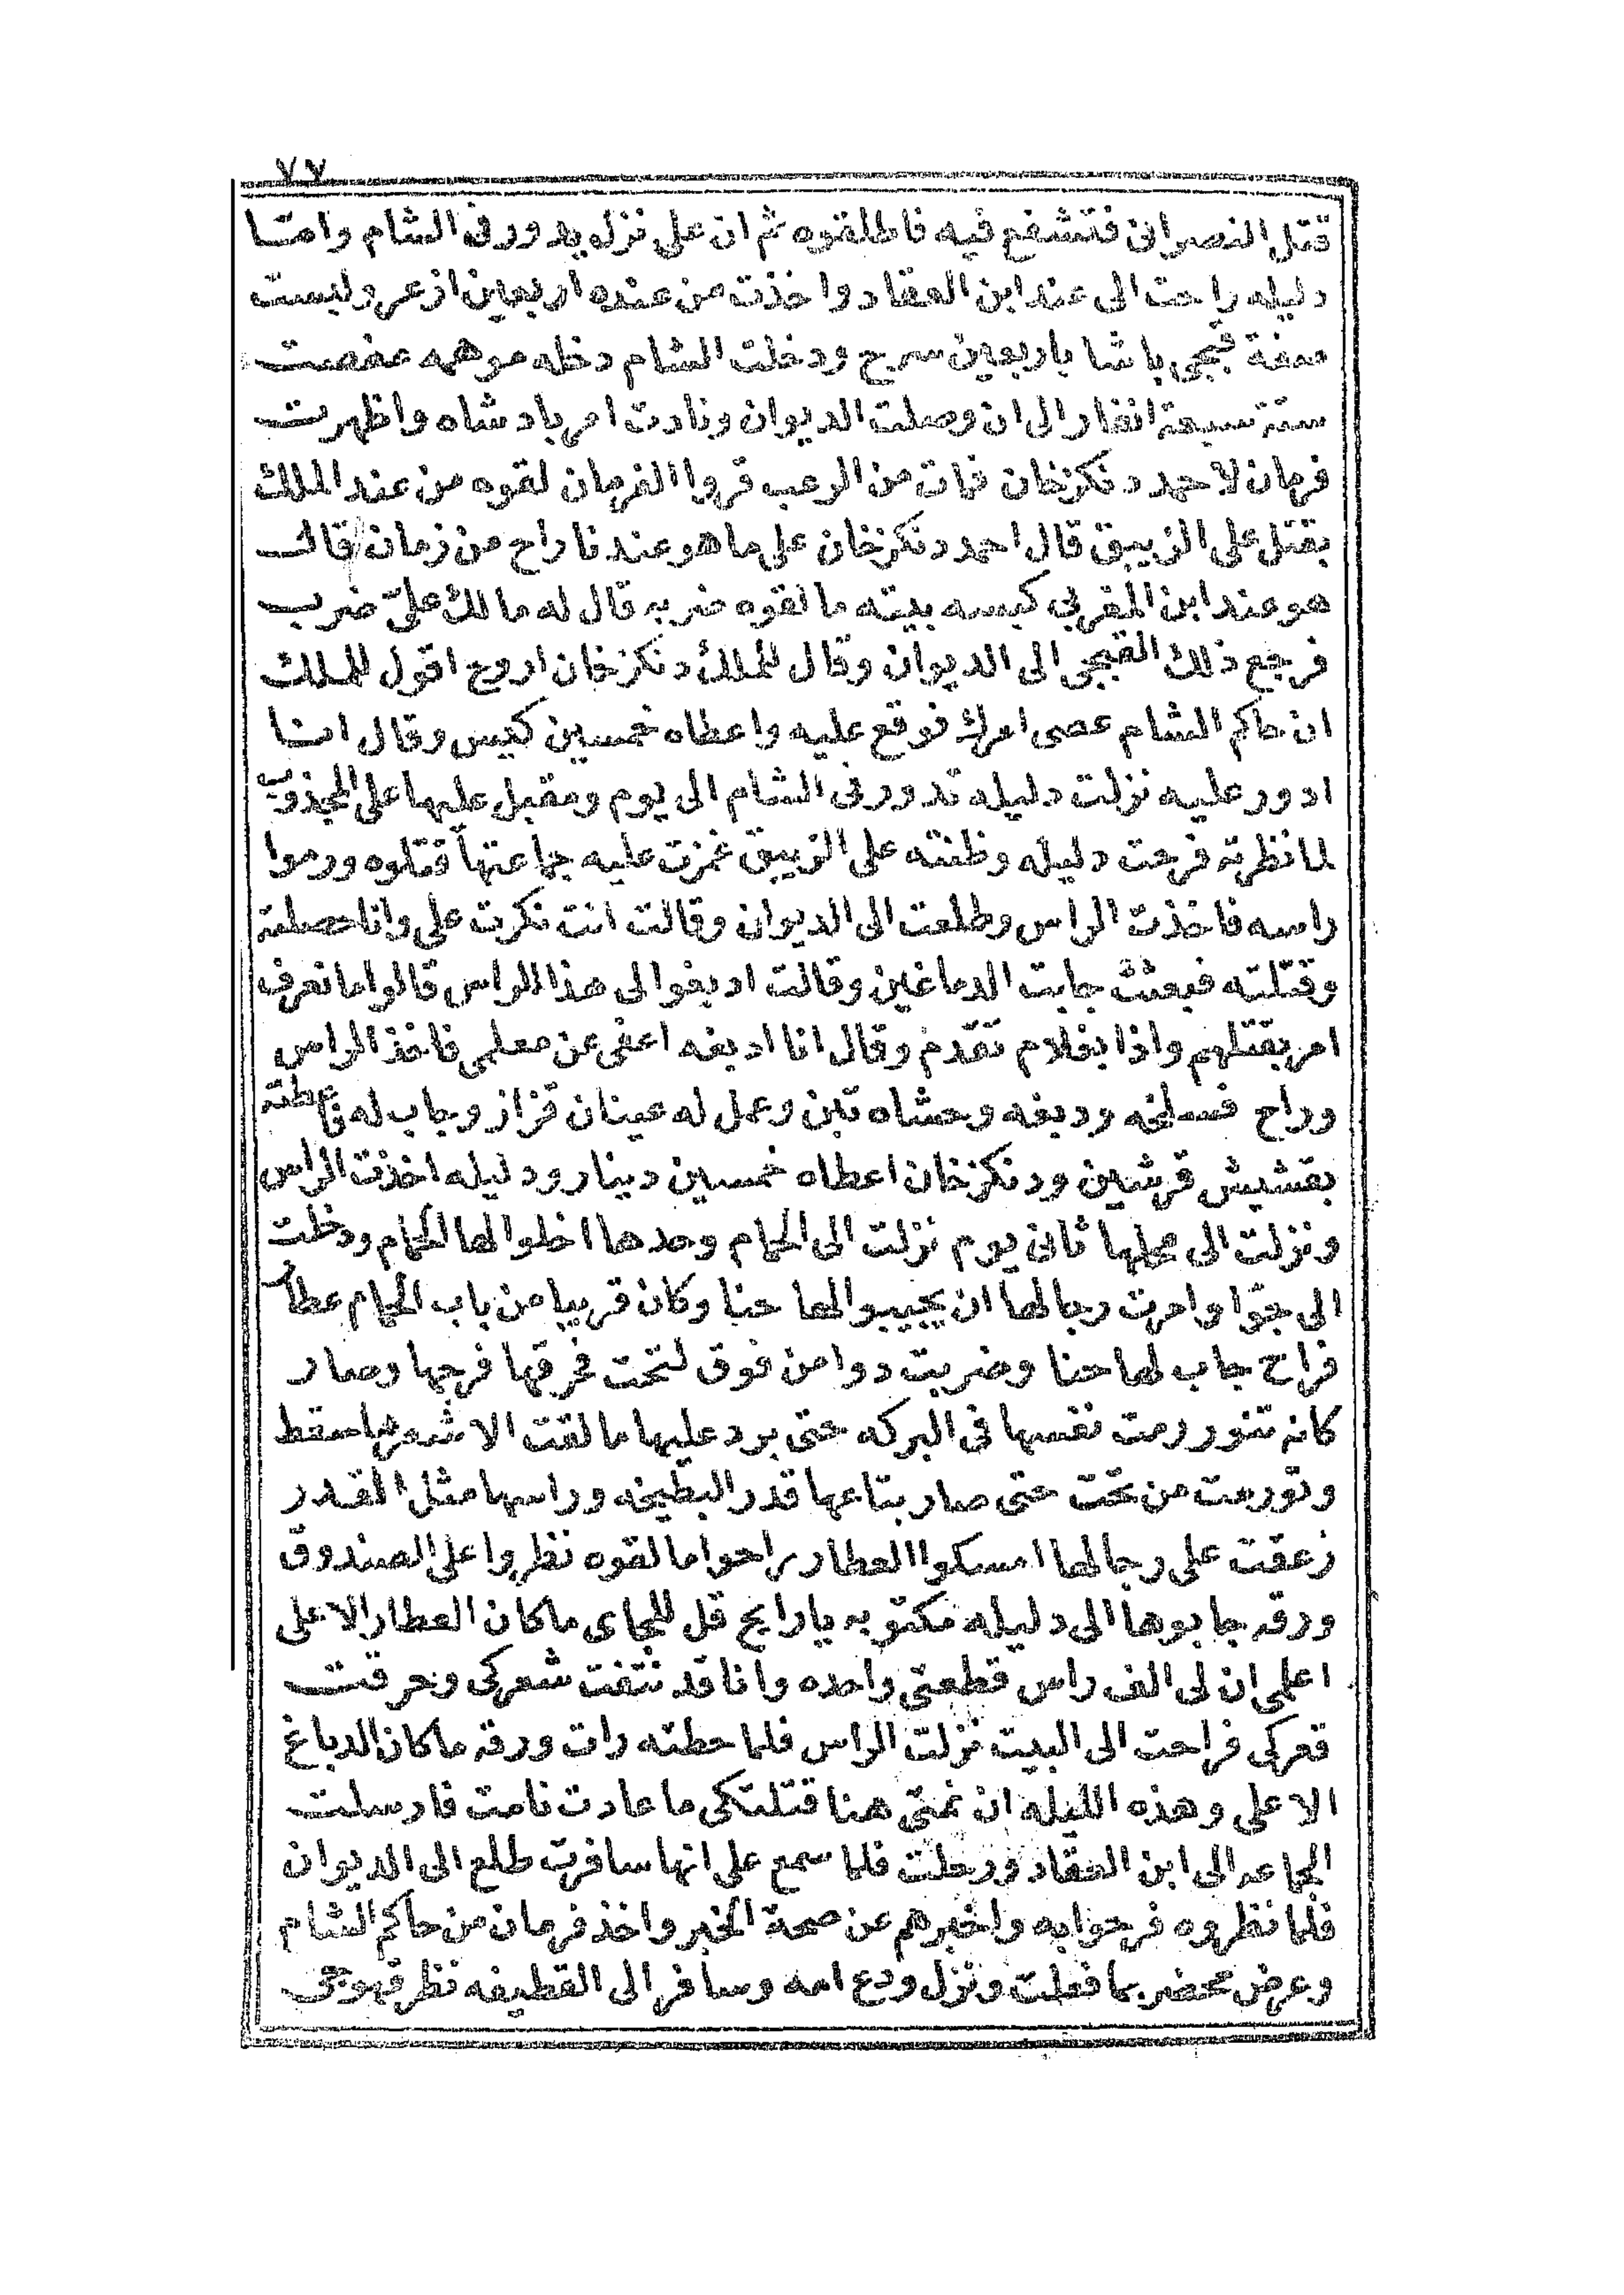 ٧٧
قتل النصرانى فتشفع فيه فاطلقوه ثم ان على نزل يدور فى الشام وامتا
دليله راحت الى عند ابن العقاد واخذت من عنده اربعين ازعر ولبست
صفة قبجى باشا باربعين سرج ودخلت الشام دخله موهمه عفصت
ستة سبعة انفار الى ان وصلت الديوان ونادت امر بادشاه واظهرت
فرمان لاحمد دنكزخان فمات من الرعب قروا الفرمان لقوه من عند الملك
بقتل على الزيبق قال احمد دنكزخان على ما هو عندنا راح من زمان قالت
هو عند ابن المغربى كبسه بيته ما لقوه ضربه قال له مالك علىّ ضرب
فرجع ذلك القبجى الى الديوان وقال للملك دنكزخان اروح اقول للملك
ان حاكم الشام عصى امرك فوقع عليه واعطاه خمسين كيس وقال انا
ادور عليه نزلت دليله تدور فى الشام الى يوم ومقبل عليها على المجذوب
لما نظرته فرحت دليله وظنته على الزيبق غمزت عليه جماعتها قتلوه ورموا
راسه فاخذت الراس وطلعت الى الديوان وقالت انت نكرت على وانا حصلته
وقتلته فبعثت جابت الدباغين وقالت ادبغوا لى هذا الراس قالوا ما نعرف
امر بقتلهم واذا بغلام تقدّم وقال انا ادبغه اعفى عن معلمى فاخذ الراس
وراح فسلخه ودبغه وحشاه تبن وعمل له عينان قزاز وجاب له فاعطته
بقشيش قرشين ودنكزخان اعطاه خمسين دينار ودليله اخذت الراس
ونزلت الى محلها ثانى يوم نزلت الى الحمام وحدها اخلوا لها الحمام ودخلت
الى جوّا وامرت رجالها ان يجيبوا لها حنا وكان قريبا من باب الحمام عطار
فراح جاب لها حنا وضربت دوا من فوق لتحت فحرقها فرجها وصار
كانه تنور رمت نفسها فى البركه حتى برد عليها ما لقت الا شعرها سقط
وتورمت من تحت حتى صار بتاعها قدر البطيخه وراسها مثل القدر
زعقت على رجالها امسكوا العطار راحوا ما لقوه نظروا على الصندوق
ورقه جابوها الى دليله مكتوبه يا رايح قل للجاى ما كان العطار الا على
اعلمى ان لى الف راس قطعتى واحده وانا قد نتفت شعركى وحرقت
قعركى فراحت الى البيت نزلت الراس فلما حطته رات ورقه ما كان الدباغ
الا على وهذه الليله ان نمتى هنا قتلتكى ما عادت نامت فارسلت
الجماعه الى ابن العقاد ورحلت فلما سمع على انها سافرت طلع الى الديوان
فلما نظروه فرحوا به واخبرهم عن صحة الخبر واخذ فرمان من حاكم الشام
وعرض محضر بما فعلت ونزل ودع امه وسافر الى القطيفه نظر قهوجى